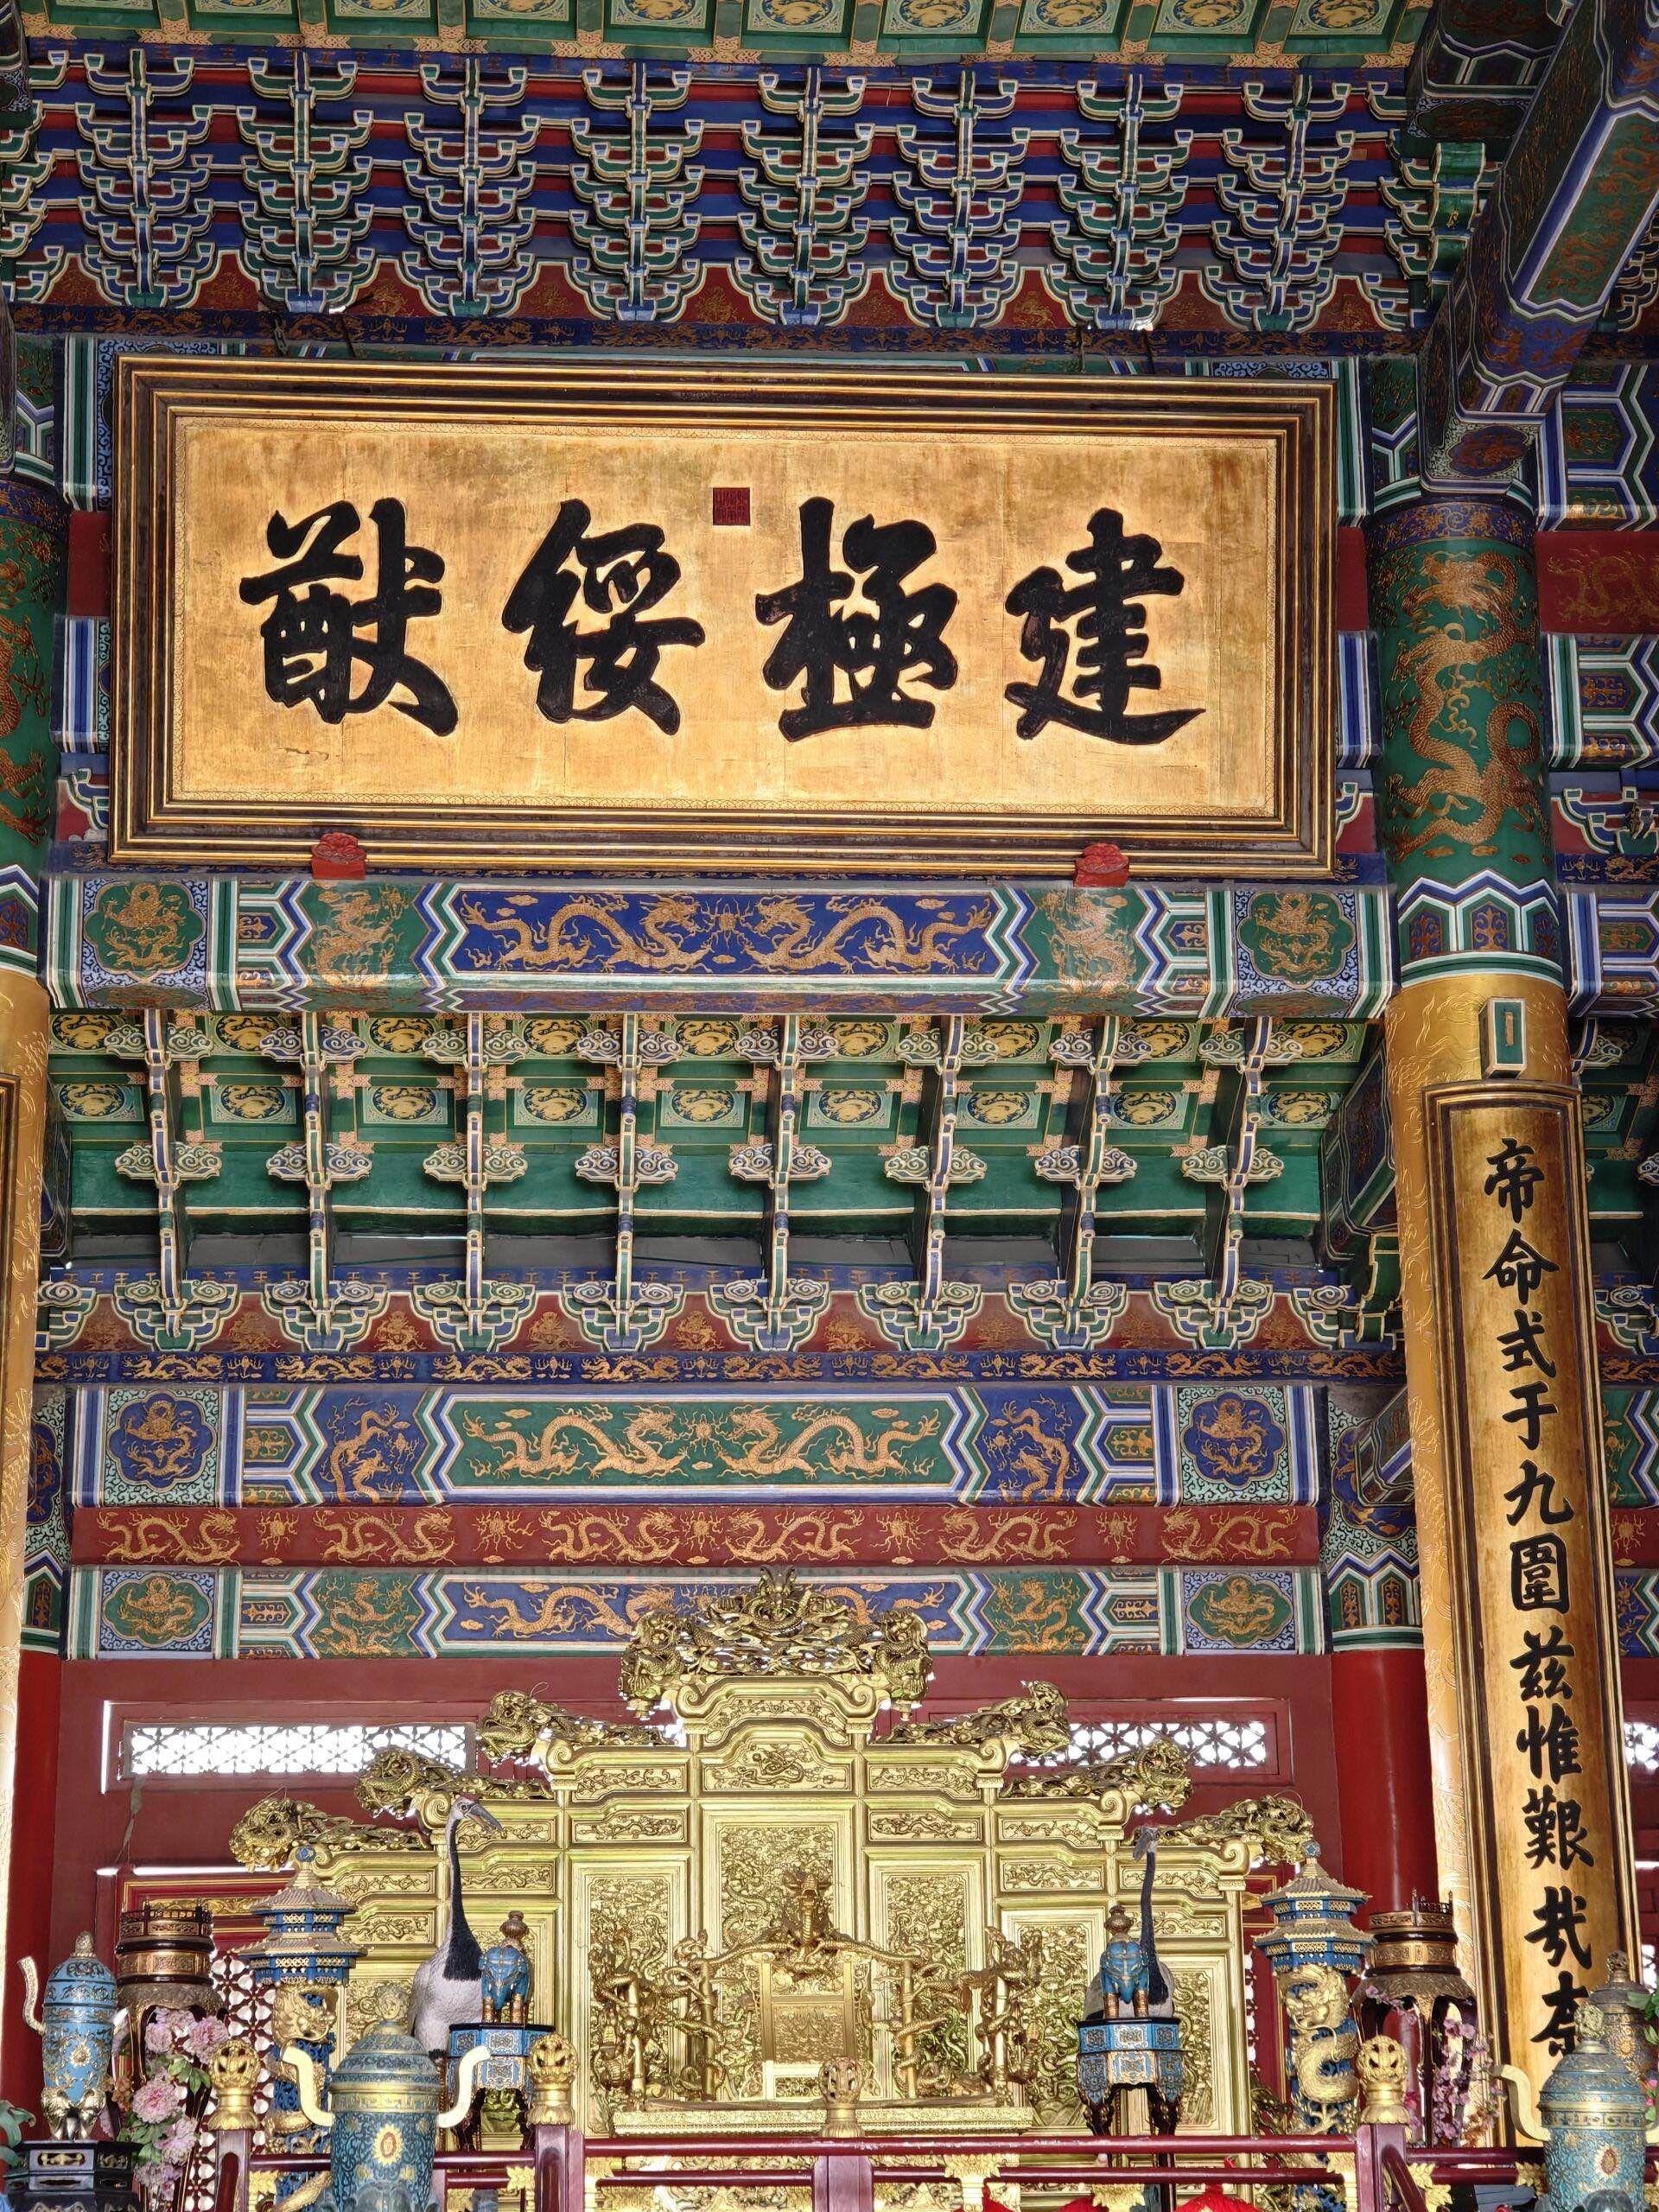 建極綏猷
帝命式于九圍茲惟艱哉奈